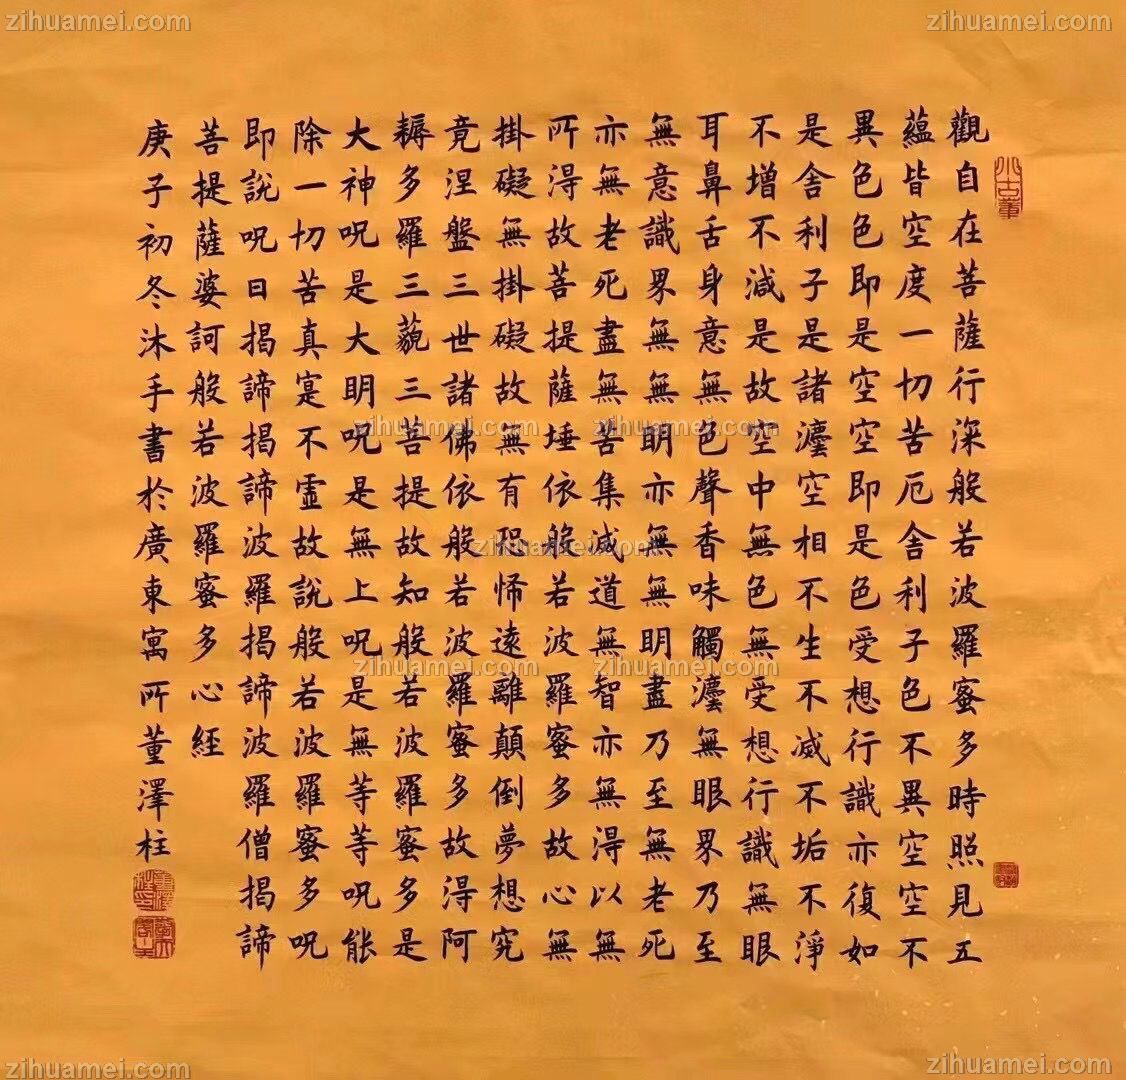 zihuamei.com
zihuamei.com
觀自在菩薩行深般若波羅蜜多時照見五
蘊皆空度一切苦厄舍利子色不異空空不
異色色即是空空即是色受想行識亦復如
是舍利子是諸灋空相不生不滅不垢不淨
不增不減是故空中無色無受想行識無眼
耳鼻舌身意無色聲香味觸灋無眼界乃至
無意識界無無明亦無無明盡乃至無老死
亦無老死盡無苦集滅道無智亦無得以無
所得故菩提薩埵依般若波羅蜜多故心無
掛礙無掛礙故無有恐怖遠離顛倒夢想究
竟涅盤三世諸佛依般若波羅蜜多故得阿
耨多羅三藐三菩提故知般若波羅蜜多是
大神呪是大明呪是無上呪是無等等呪能
除一切苦真寔不虛故說般若波羅蜜多呪
即說呪曰揭諦揭諦波羅揭諦波羅僧揭諦
菩提薩婆訶般若波羅蜜多心經
庚子初冬沐手書於廣東寓所董澤柱
zihuamei.com
zihuamei.com
zihuamei.com
zihuamei.com
zihuamei.com
zihuamei.com
zihuamei.com